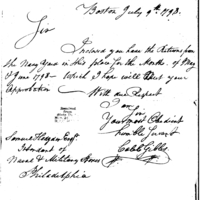 Boston July 9th. 1798.
Sir
Inclosed you have the Returns from
the Navy Yard in this place for the Months of May
& June 1798 - Which I hope will meet your
Approbation
With due Respect
I am
Sir
Your most Obedient
humble Servant
Caleb Gibbs
Samuel Hodgdon Esqr.
Intendant of
Naval & Military Stores
Philadelphia